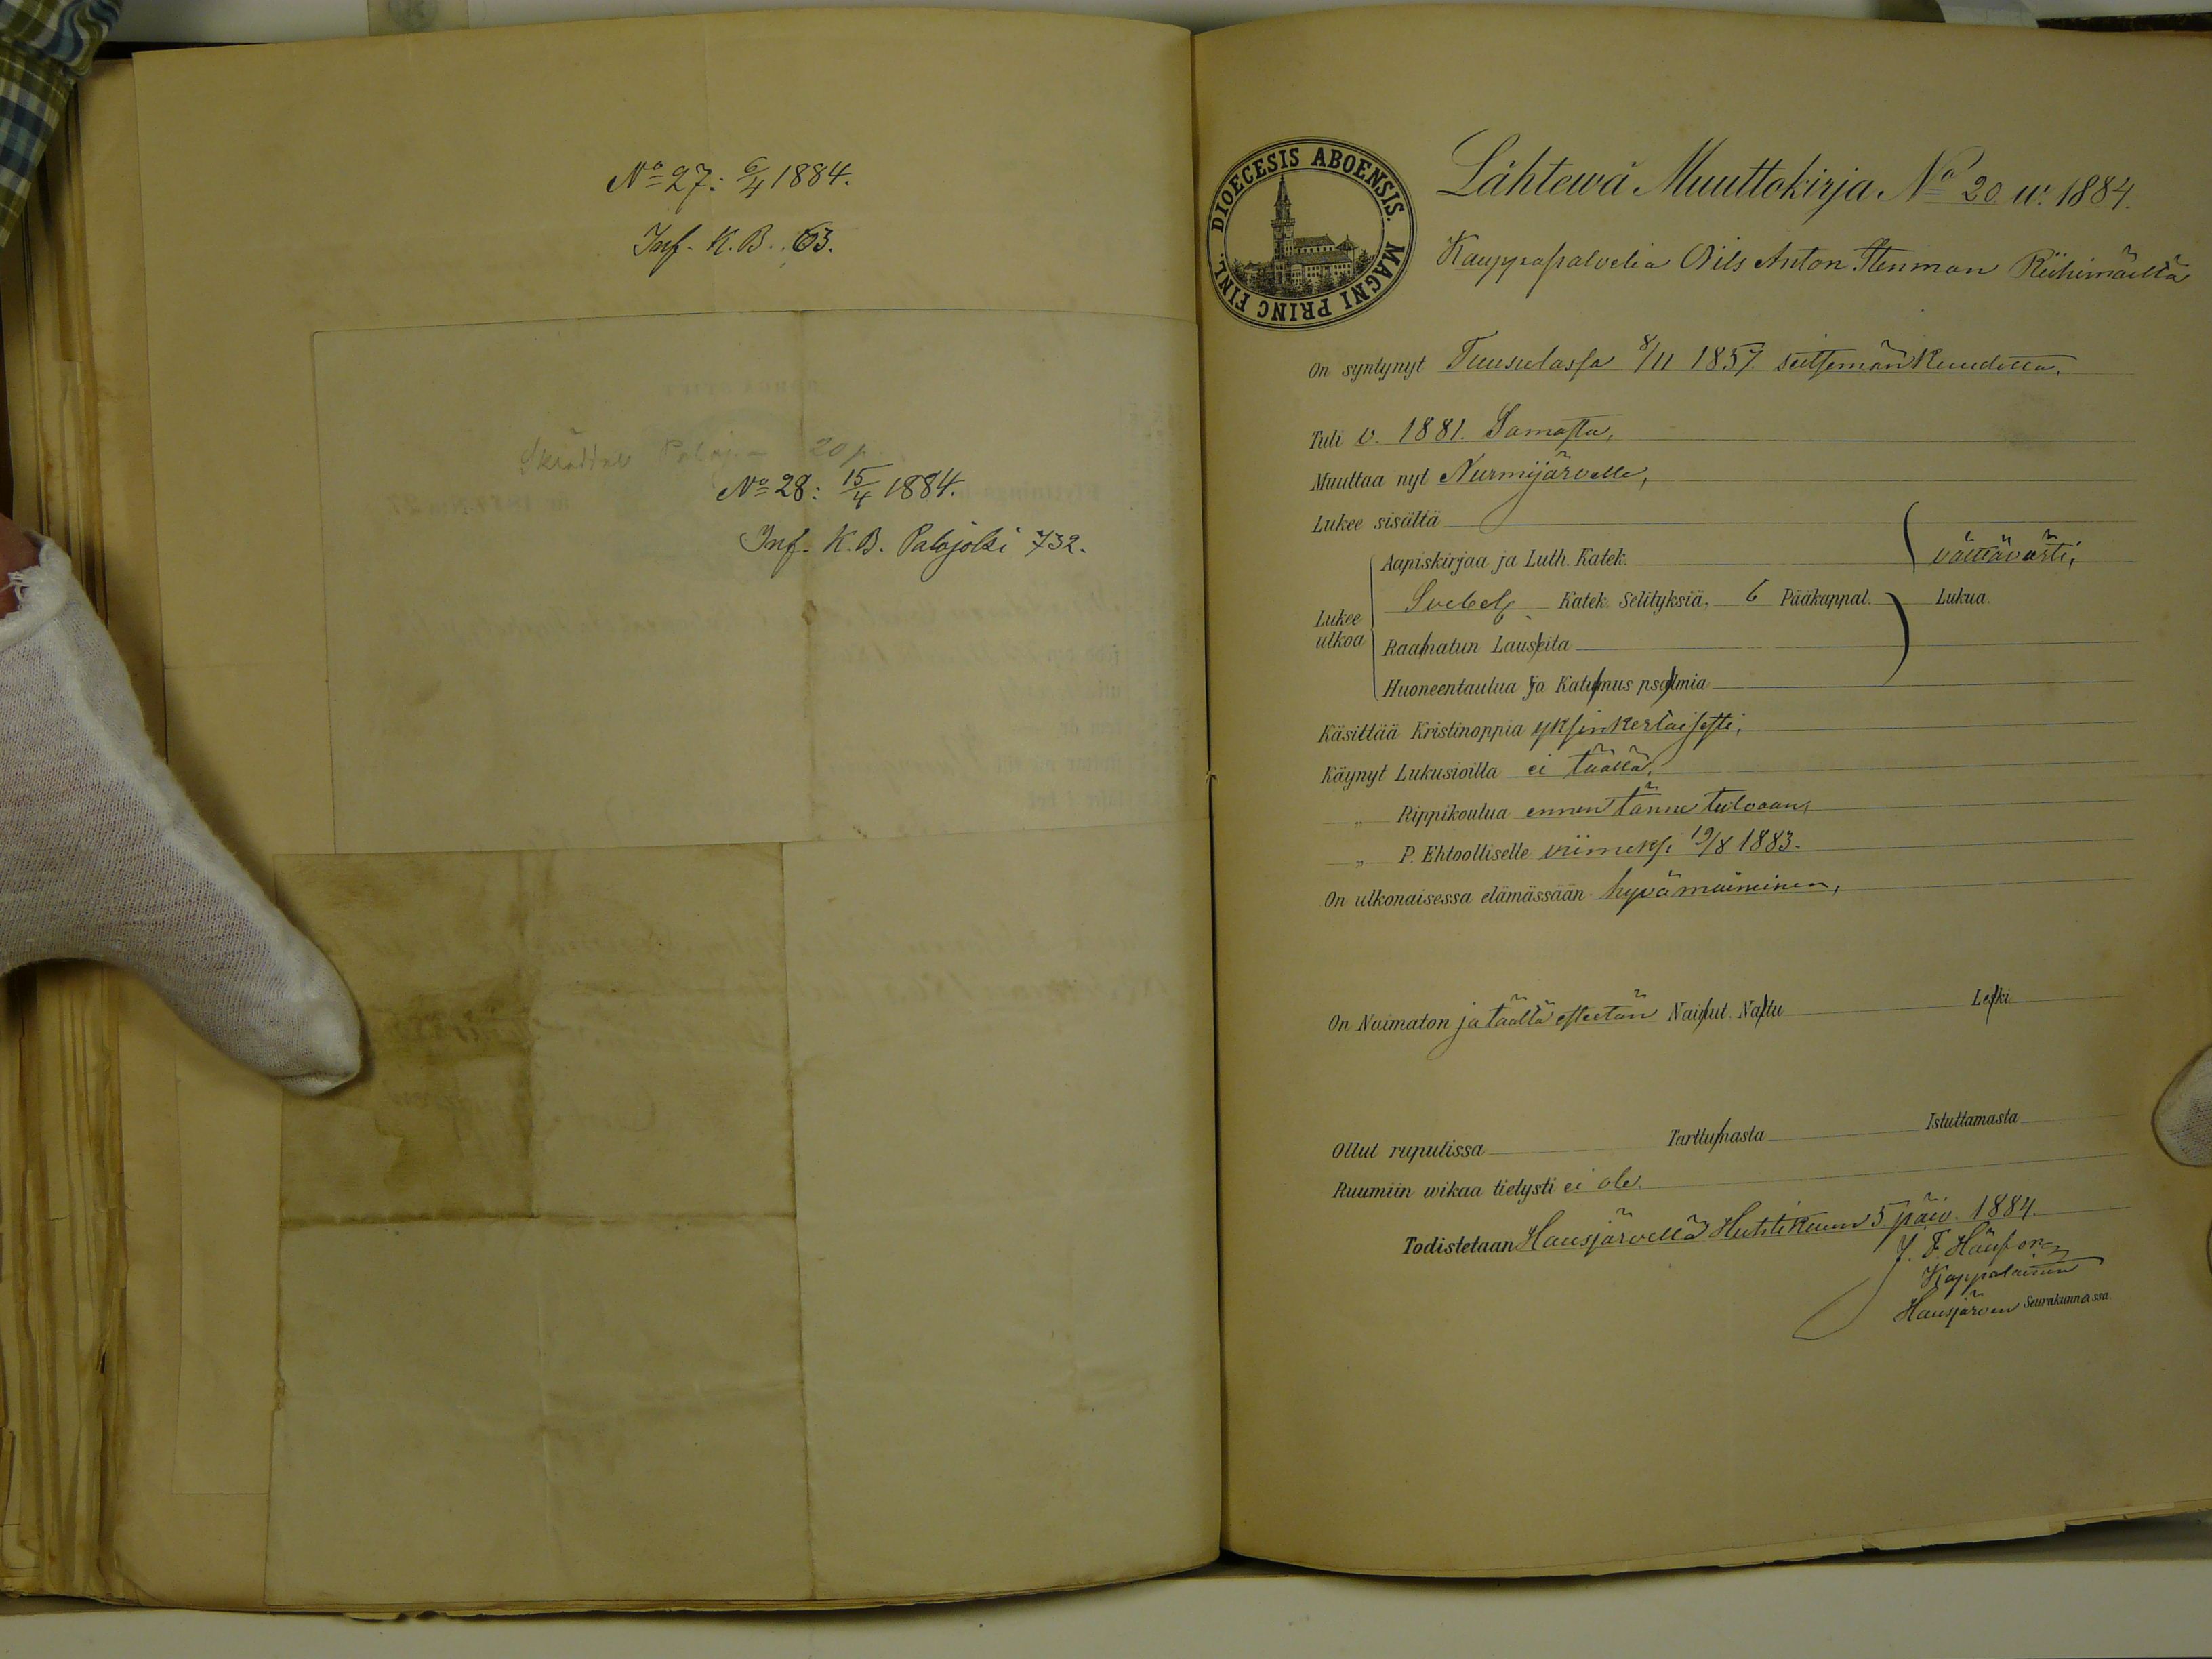 No 27: 6/4 1884.
Inf. K. B. 63.
20 p.
No 28: 15/4 1884.
Inf. K. B. Palojoki 732.
DIOECESIS ABOENSIS. MAGNI PRINC FINL.
Lähtewä Muuttokirja No 20 w. 1884.
Kauppapalvelia Nils Anton Stenman Riihimäeltä
On syntynyt Tuusulassa 8/11 1857. seitsemänkuudetta,
Tuli v. 1881. Samasta,
Muuttaa nyt Nurmijärvelle,
Lukee sisältä
Aapiskirjaa ja Luth. Katek. välttävästi,
Lukee ulkoa
Svebel. Katek. Selityksiä, 6 Pääkappal. Lukua.
Raamatun Lauseita
Huoneentaulua ja Katumus psalmia
Käsittää Kristinoppia yksinkertaisesti,
Käynyt Lukusioilla ei täällä,
„ Rippikoulua ennen tänne tuloaan,
„ P. Ehtoolliselle viimeksi 19/8 1883.
On ulkonaisessa elämässään hyvämaininen,
On Naimaton ja täältä esteetön Nainut. Naitu Leski
Ollut rupulissa Tarttumasta Istuttamasta
Ruumiin wikaa tietysti ei ole.
Todistetaan Hausjärvellä Huhtikuun 5 päiv. 1884.
J. F.
Kappalainen
Hausjärven Seurakunnassa.